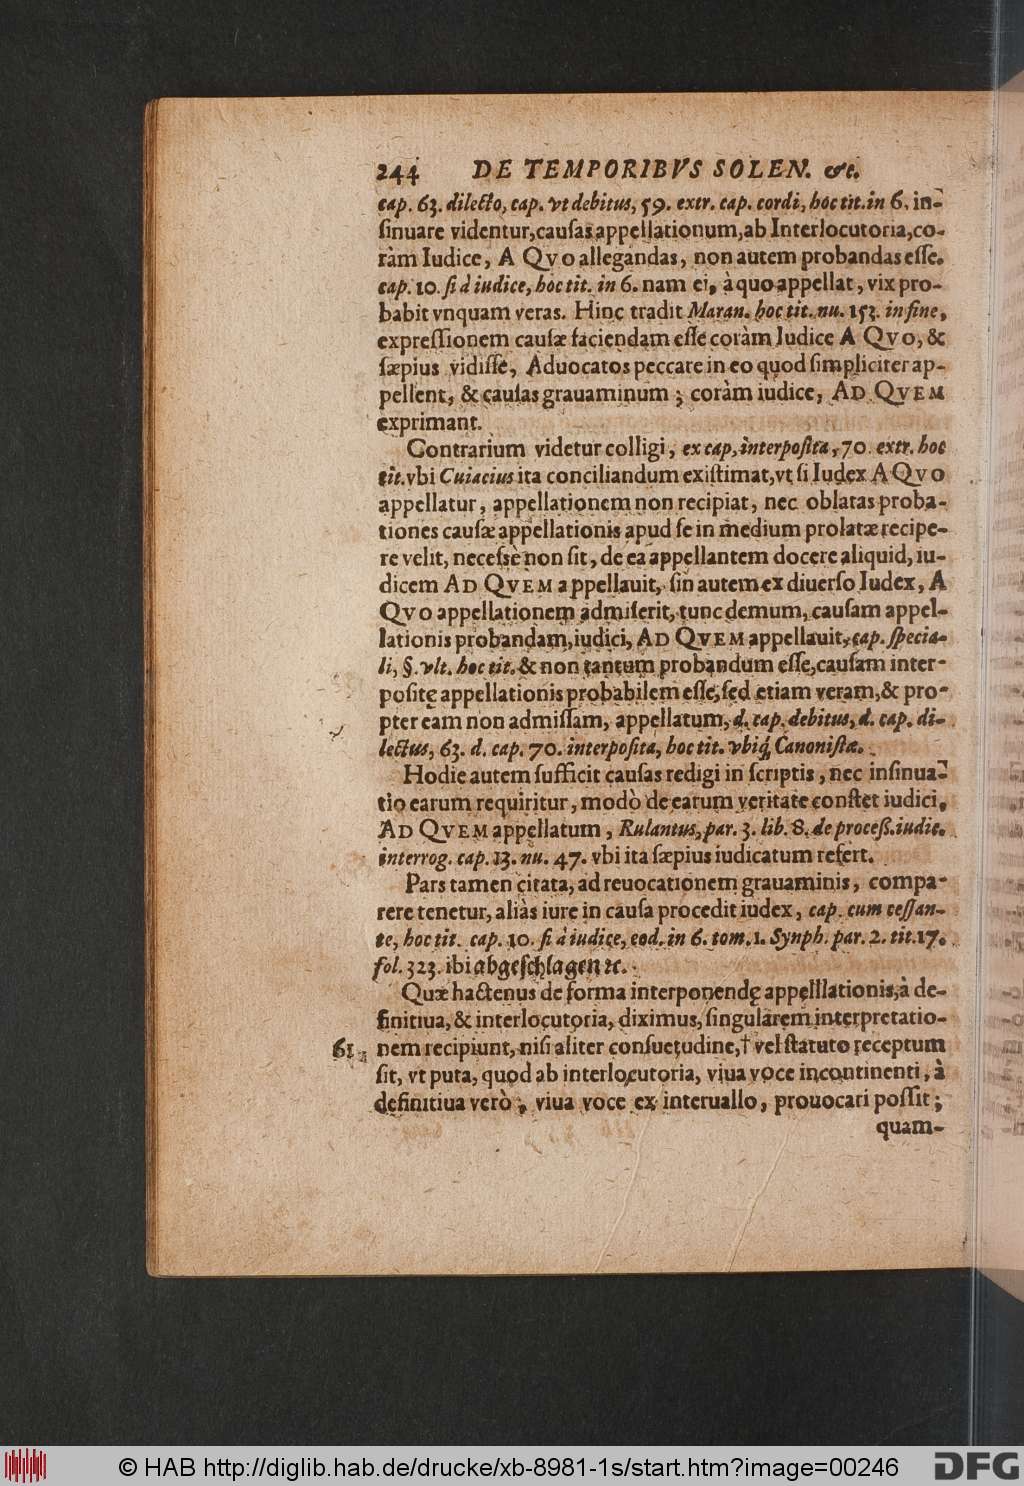 244 DE TEMPORIBVS SOLEN. &c.
cap. 63. dilecto, cap. vt debitus, 59. extr. cap. cordi, hoc tit. in 6. in-
ſinuare videntur, cauſas appellationum, ab Interlocutoria, co-
ràm Iudice, A QVO allegandas, non autem probandas eſſe.
cap. 10. ſi à iudice, hoc tit. in 6. nam ei, à quo appellat, vix pro-
babit vnquam veras. Hinc tradit Maran. hoc tit. nu. 153. in fine,
expreſſionem cauſæ faciendam eſſe coràm Iudice A QVO, &
ſæpius vidiſſe, Aduocatos peccare in eo quod ſimpliciter ap-
pellent, & cauſas grauaminum; coràm iudice, AD QVEM
exprimant.
Contrarium videtur colligi, ex cap, interpoſita, 70. extr. hoc
tit. vbi Cuiacius ita conciliandum exiſtimat, vt ſi Iudex A QVO
appellatur, appellationem non recipiat, nec oblatas proba-
tiones cauſæ appellationis apud ſe in medium prolatæ recipe-
re velit, neceſsè non ſit, de ea appellantem docere aliquid, iu-
dicem AD QVEM appellauit, ſin autem ex diuerſo Iudex, A
QVO appellationem admiſerit, tunc demum, cauſam appel-
lationis probandam, iudici, AD QVEM appellauit, cap. ſpecia-
li, §. vlt. hoc tit. & non tantum probandum eſſe, cauſam inter-
poſitę appellationis probabilem eſſe, ſed etiam veram, & pro-
pter eam non admiſſam, appellatum, d. cap. debitus, d. cap. di-
lectus, 63. d. cap. 70. interpoſita, hoc tit. vbiq́; Canoniſtæ.
Hodie autem ſufficit cauſas redigi in ſcriptis, nec inſinua-
tio earum requiritur, modò de earum veritate conſtet iudici,
AD QVEM appellatum, Rulantus, par. 3. lib. 8. de proceſſ. iudic.
interrog. cap. 13. nu. 47. vbi ita ſæpius iudicatum refert.
Pars tamen citata, ad reuocationem grauaminis, compa-
rere tenetur, aliàs iure in cauſa procedit iudex, cap. cum ceſſan-
te, hoc tit. cap. 10. ſi à iudice, eod. in 6. tom. 1. Synph. par. 2. tit. 17.
fol. 323. ibi abgeſchlagen ꝛc.
Quæ hactenus de forma interponendę appelllationis, à de-
finitiua, & interlocutoria, diximus, ſingularem interpretatio-
61. nem recipiunt, niſi aliter conſuetudine, † vel ſtatuto receptum
ſit, vt puta, quod ab interlocutoria, viua voce incontinenti, à
definitiua verò, viua voce ex interuallo, prouocari poſſit;
quam-
© HAB http://diglib.hab.de/drucke/xb-8981-1s/start.htm?image=00246
DFG